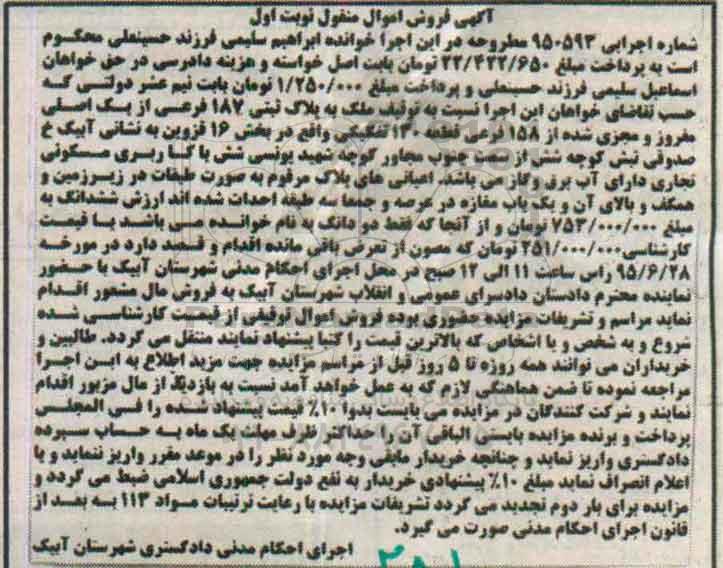 آگهی فروش اموال منقول نوبت اول
شماره اجرایی ۹۵۰۵۹۳ مطروحه در این اجرا خوانده ابراهیم سلیمی فرزند حسینعلی محکوم
است به پرداخت مبلغ ۲۲/۴۲۲/۶۵۰ تومان بابت اصل خواسته و هزینه دادرسی در حق خواهان
اسماعیل سلیمی فرزند حسینعلی و پرداخت مبلغ ۱/۲۵۰/۰۰۰ تومان بابت نیم عشر دولتی که
حسب تقاضای خواهان این اجرا نسبت به توقیف ملک به پلاک ثبتی ۱۸۷ فرعی از یک اصلی
مفروز و مجزی شده از ۱۵۸ فرعی قطعه ۱۳۰ تفکیکی واقع در بخش ۱۶ قزوین به نشانی آبیک خ
صدوقی نبش کوچه شش از سمت جنوب مجاور کوچه شهید یونسی شش با کا ربری مسکونی
تجاری دارای آب برق وگاز می باشد. اعیانی های پلاک مرقوم به صورت طبقات در زیرزمین و
همکف و بالای آن و یک باب مغازه در عرصه و جمعا سه طبقه احداث شده اند ارزش ششدانگ به
مبلغ ۷۵۳/۰۰۰/۰۰۰ تومان و از آنجا که فقط دو دانگ به نام خوانده می باشد با قیمت
کارشناسی۲۵۱/۰۰۰/۰۰۰ تومان که مصون از تعرض باقی مانده اقدام و قصد دارد در مورخه
۹۵/۶/۲۸ راس ساعت ۱۱ الی ۱۲ صبح در محل اجرای احکام مدنی شهرستان آبیک با حضور
نماینده محترم دادستان دادسرای عمومی و انقلاب شهرستان آبیک به فروش مال مشعور اقدام
نماید مراسم و تشریفات مزایده حضوری بوده فروش اموال توقیفی از قیمت کارشناسی شده
شروع و به شخص و یا اشخاص که بالاترین قیمت را کتبا پیشنهاد نمایند منتقل می گردد. طالبین و
خریداران می توانند همه روزه تا ۵ روز قبل از مراسم مزایده جهت مزید اطلاع به این اجرا
مراجعه نموده تا ضمن هماهنگی لازم که به عمل خواهد آمد نسبت به بازدید از مال مزبور اقدام
نمایند و شرکت کنندگان در مزایده می بایست بدوا ۱۰٪ قیمت پیشنهاد شده را فی المجلس
پرداخت و برنده مزایده بایستی الباقی آن را حداکثر ظرف مهلت یک ماه به حساب سپرده
دادگستری واریز نماید و چنانچه خریدار مابقی وجه مورد نظر را در موعد مقرر واریز ننماید و یا
اعلام انصراف نماید مبلغ ۱۰٪ پیشنهادی خریدار به نفع دولت جمهوری اسلامی ضبط می گردد و
مزایده برای بار دوم تجدید می گردد تشریفات مزایده با رعایت ترتیبات مواد ۱۱۳ به بعد از
قانون اجرای احکام مدنی صورت می گیرد.
اجرای احکام مدنی دادگستری شهرستان آبیک